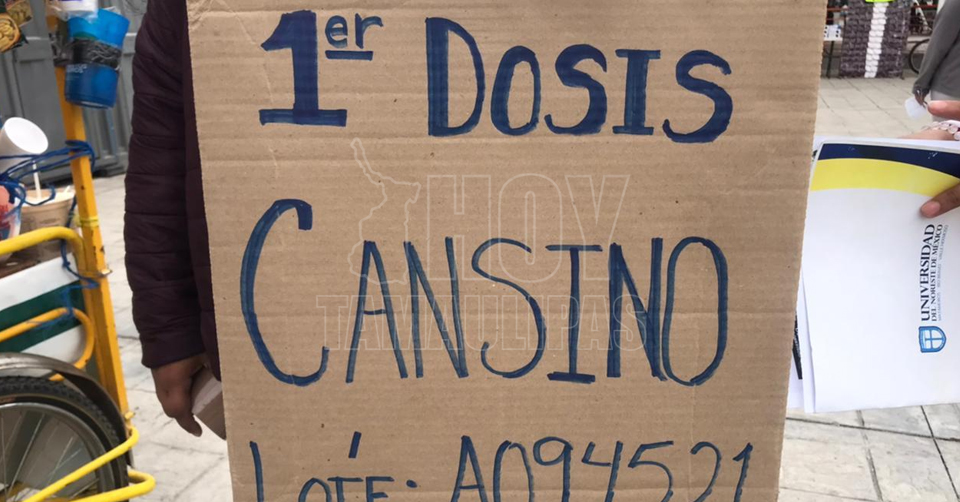 1er DOSIS
CANSINO
LOTÉ: A094521
HOY
TAMAULIPAS
UNIVERSIDAD
DEL NORESTE DE MÉXICO